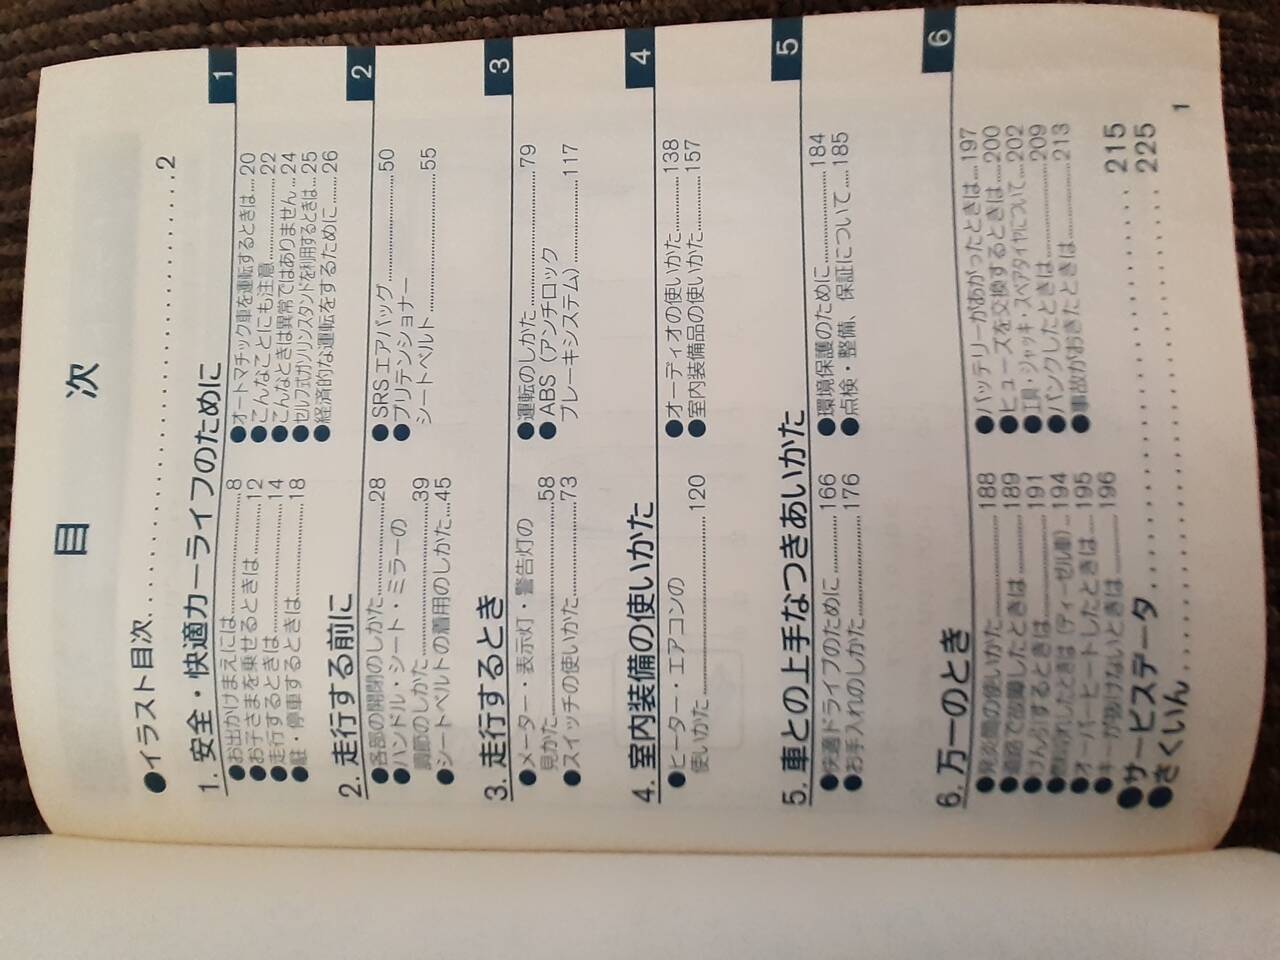 目次
●イラスト目次 2
1. 安全・快適カーライフのために
●お出かけまえには 8
●お子さまを乗せるときは 12
●走行するときは 14
●駐・停車するときは 18
●オートマチック車を運転するときは 20
●こんなことにも注意 22
●こんなときは異常ではありません 24
●セルフ式ガソリンスタンドを利用するときは 25
●経済的な運転をするために 26
1
2. 走行する前に
●各部の開閉のしかた 28
●ハンドル・シート・ミラーの
調節のしかた 39
●シートベルトの着用のしかた 45
●SRSエアバッグ 50
●プリテンショナー
シートベルト 55
2
3. 走行するとき
●メーター・表示灯・警告灯の
見かた 58
●スイッチの使いかた 73
●運転のしかた 79
●ABS（アンチロック
ブレーキシステム） 117
3
4. 室内装備の使いかた
●ヒーター・エアコンの
使いかた 120
●オーディオの使いかた 138
●室内装備品の使いかた 157
4
5. 車との上手なつきあいかた
●快適ドライブのために 166
●お手入れのしかた 176
●環境保護のために 184
●点検・整備、保証について 185
5
6. 万一のとき
●発炎筒の使いかた 188
●道路で故障したときは 189
●けん引するときは 191
●燃料切れしたときは（ディーゼル車） 194
●オーバーヒートしたときは 195
●キーが抜けないときは 196
●バッテリーがあがったときは 197
●ヒューズを交換するときは 200
●工具・ジャッキ・スペアタイヤについて 202
●パンクしたときは 209
●事故がおきたときは 213
6
●サービスデータ 215
●さくいん 225
1